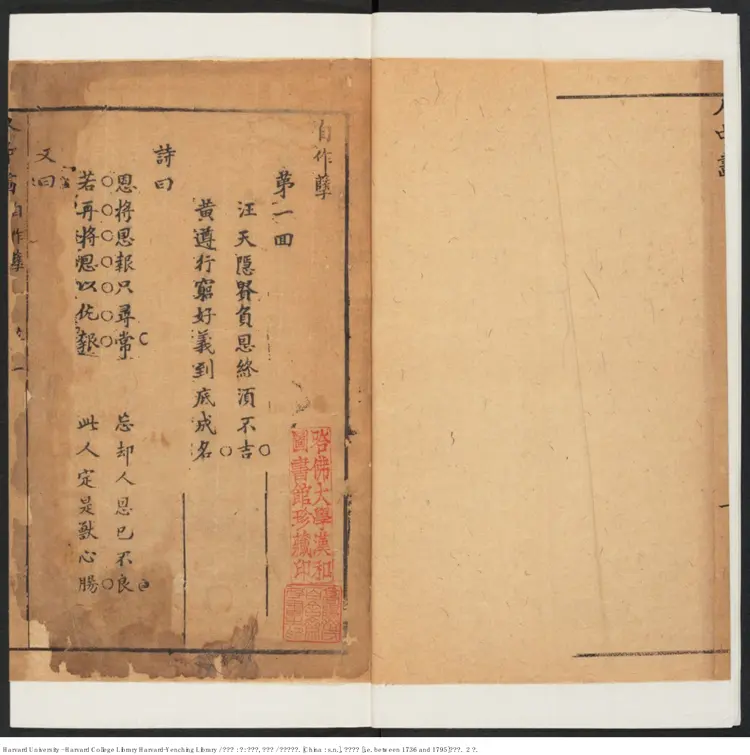 自作孽
第一回
汪天隱器負恩終須不吉
黄遵行窮好義到底成名
詩曰
恩將恩報只尋常 忘却人恩已不良
若再將恩以仇報 此人定是獸心腸
又曰
自作孽
哈佛大學漢和
圖書館珍藏印
Harvard University - Harvard College Library Harvard-Yenching Library / ??? : ? : ???, ??? / ?????. [China : s.n.], ???? [i.e. between 1736 and 1795] ???. 2 ?.